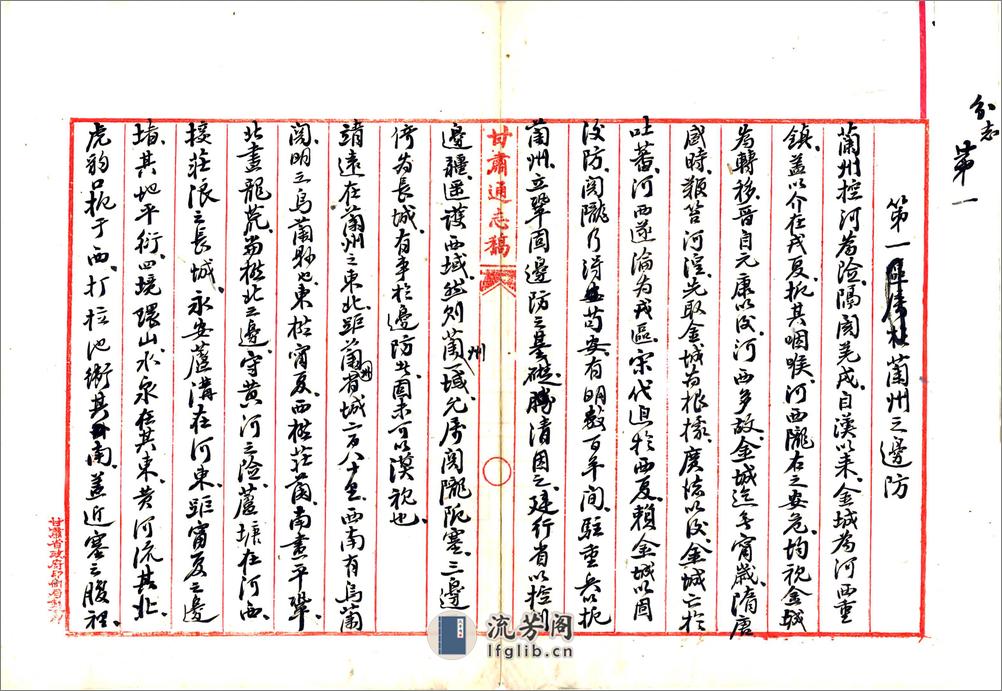 分志
第一
第一 蘭州之邊防
蘭州控河為險隔閡羌戎自漢以来金城為河西重
鎮蓋以介在戎夏扼其咽喉河西隴右之安危均視金城
為轉移晉自元康以後河西多故金城迄無甯歲隋唐
盛時頻答河湟先取金城為根據廣德以後金城亡於
吐蕃河西遂淪為戎區宋代迫於西夏賴金城以固
汶防関隴乃得苟安有明數百年間駐重兵以扼
蘭州立鞏固邊防之基礎勝清因之建行省以控制
邊疆遥護西域然则蘭州一域尤為関隴阨塞三邊
倚為長城有事於邊防共固未可以漠視也
甘肅通志稿
靖遠在蘭州之東北距蘭州省城二百八十里西南有烏蘭
関明之烏蘭縣也東控甯夏西控莊蘭南盡平鞏
北盡龍荒為控北之邊守黄河之險蘆塘在河西
接莊浪之長城永安蘆溝在河東距甯夏之邊
墻其地平衍四境環山水泉在其東黄河流其北
虎豹口扼于西打拉池衛其南蓋近塞之腹裡
甘肅省政府印刷局
流芳阁
lfglib.cn